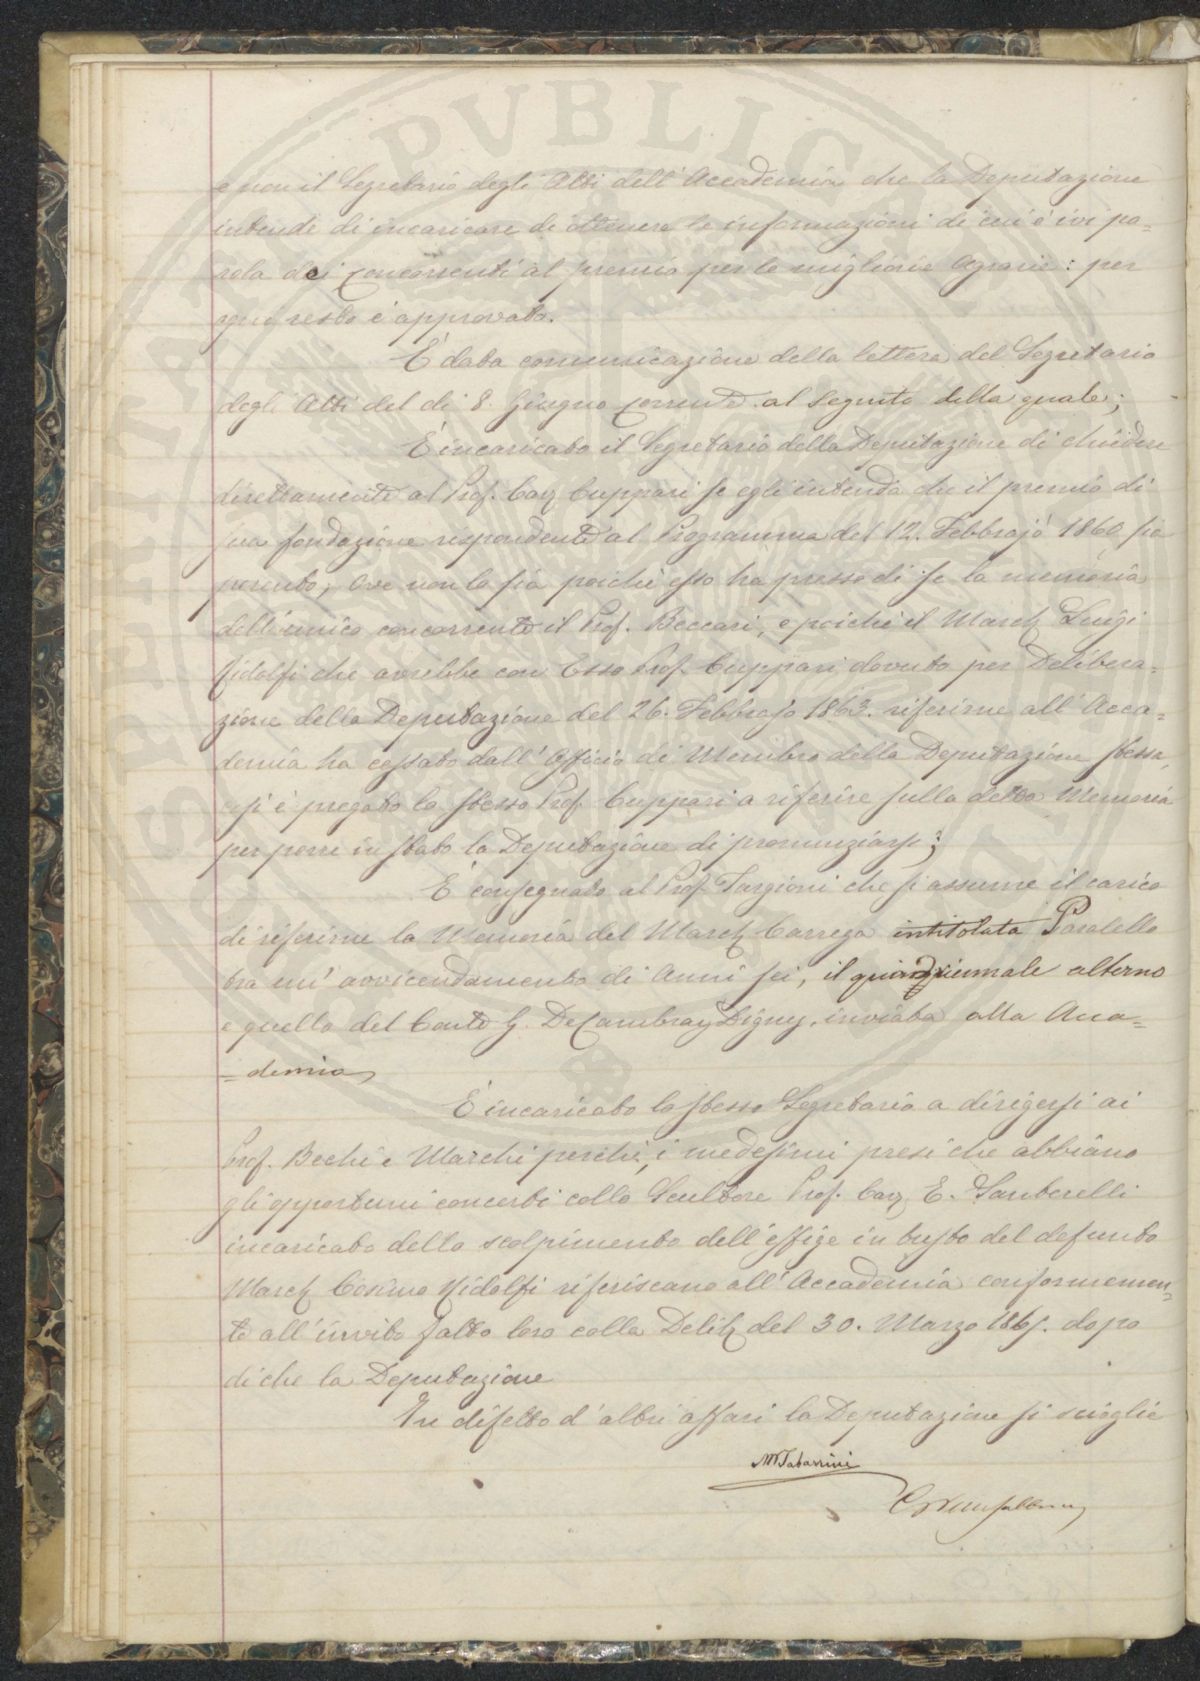 e non il Segretario degli Atti dell'Accademia che la Deputazione
intende di incaricare di ottenere le informazioni di cui è ivi pa=
rola dei concorrenti al premio per le migliorie Agrarie: per
ogni resto è approvato.
È data comunicazione della lettera del Segretario
degli Atti del di 8. Giugno corrente al seguito della quale;
È incaricato il Segretario della Deputazione di chiedere
direttamente al Prof. Cav. Cuppari se egli intenda che il premio di
sua fondazione rispondente al Programma del 12. Febbrajo 1860 sia
perento; Ove non lo sia poichè esso ha presso di se la memoria
dell'unico concorrente il Prof. Beccari, e poichè il March. Luigi
Ridolfi che avrebbe con Esso Prof. Cuppari dovuto per Delibera=
zione della Deputazione del 26. Febbrajo 1863. riferirne all'Acca=
demia ha cessato dall'Officio di Membro della Deputazione stessa,
così è pregato lo stesso Prof. Cuppari a riferire sulla detta Memoria
per porre in stato la Deputazione di pronunziarsi;
È consegnato al Prof. Targioni che si assume il carico
di riferirne la Memoria del March. Carrega intitolata Paralello
tra un'avvicendamento di Anni sei, il quadriennale alterno
e quello del Conte G. De Cambray Digny, inviata alla Acca=
=demia
È incaricato lo stesso Segretario a dirigersi ai
Prof. Bechi e Marchi perchè, i medesimi presi che abbiano
gli opportuni concerti collo Scultore Prof. Cav. E. Santarelli
incaricato dello scolpimento dell'effige in busto del defunto
March. Cosimo Ridolfi riferiscano all'Accademia conformemen=
te all'invito fatto loro colla Delib. del 30. Marzo 1865. dopo
di che la Deputazione
In difetto d'altri affari la Deputazione si scioglie
M Tabarrini